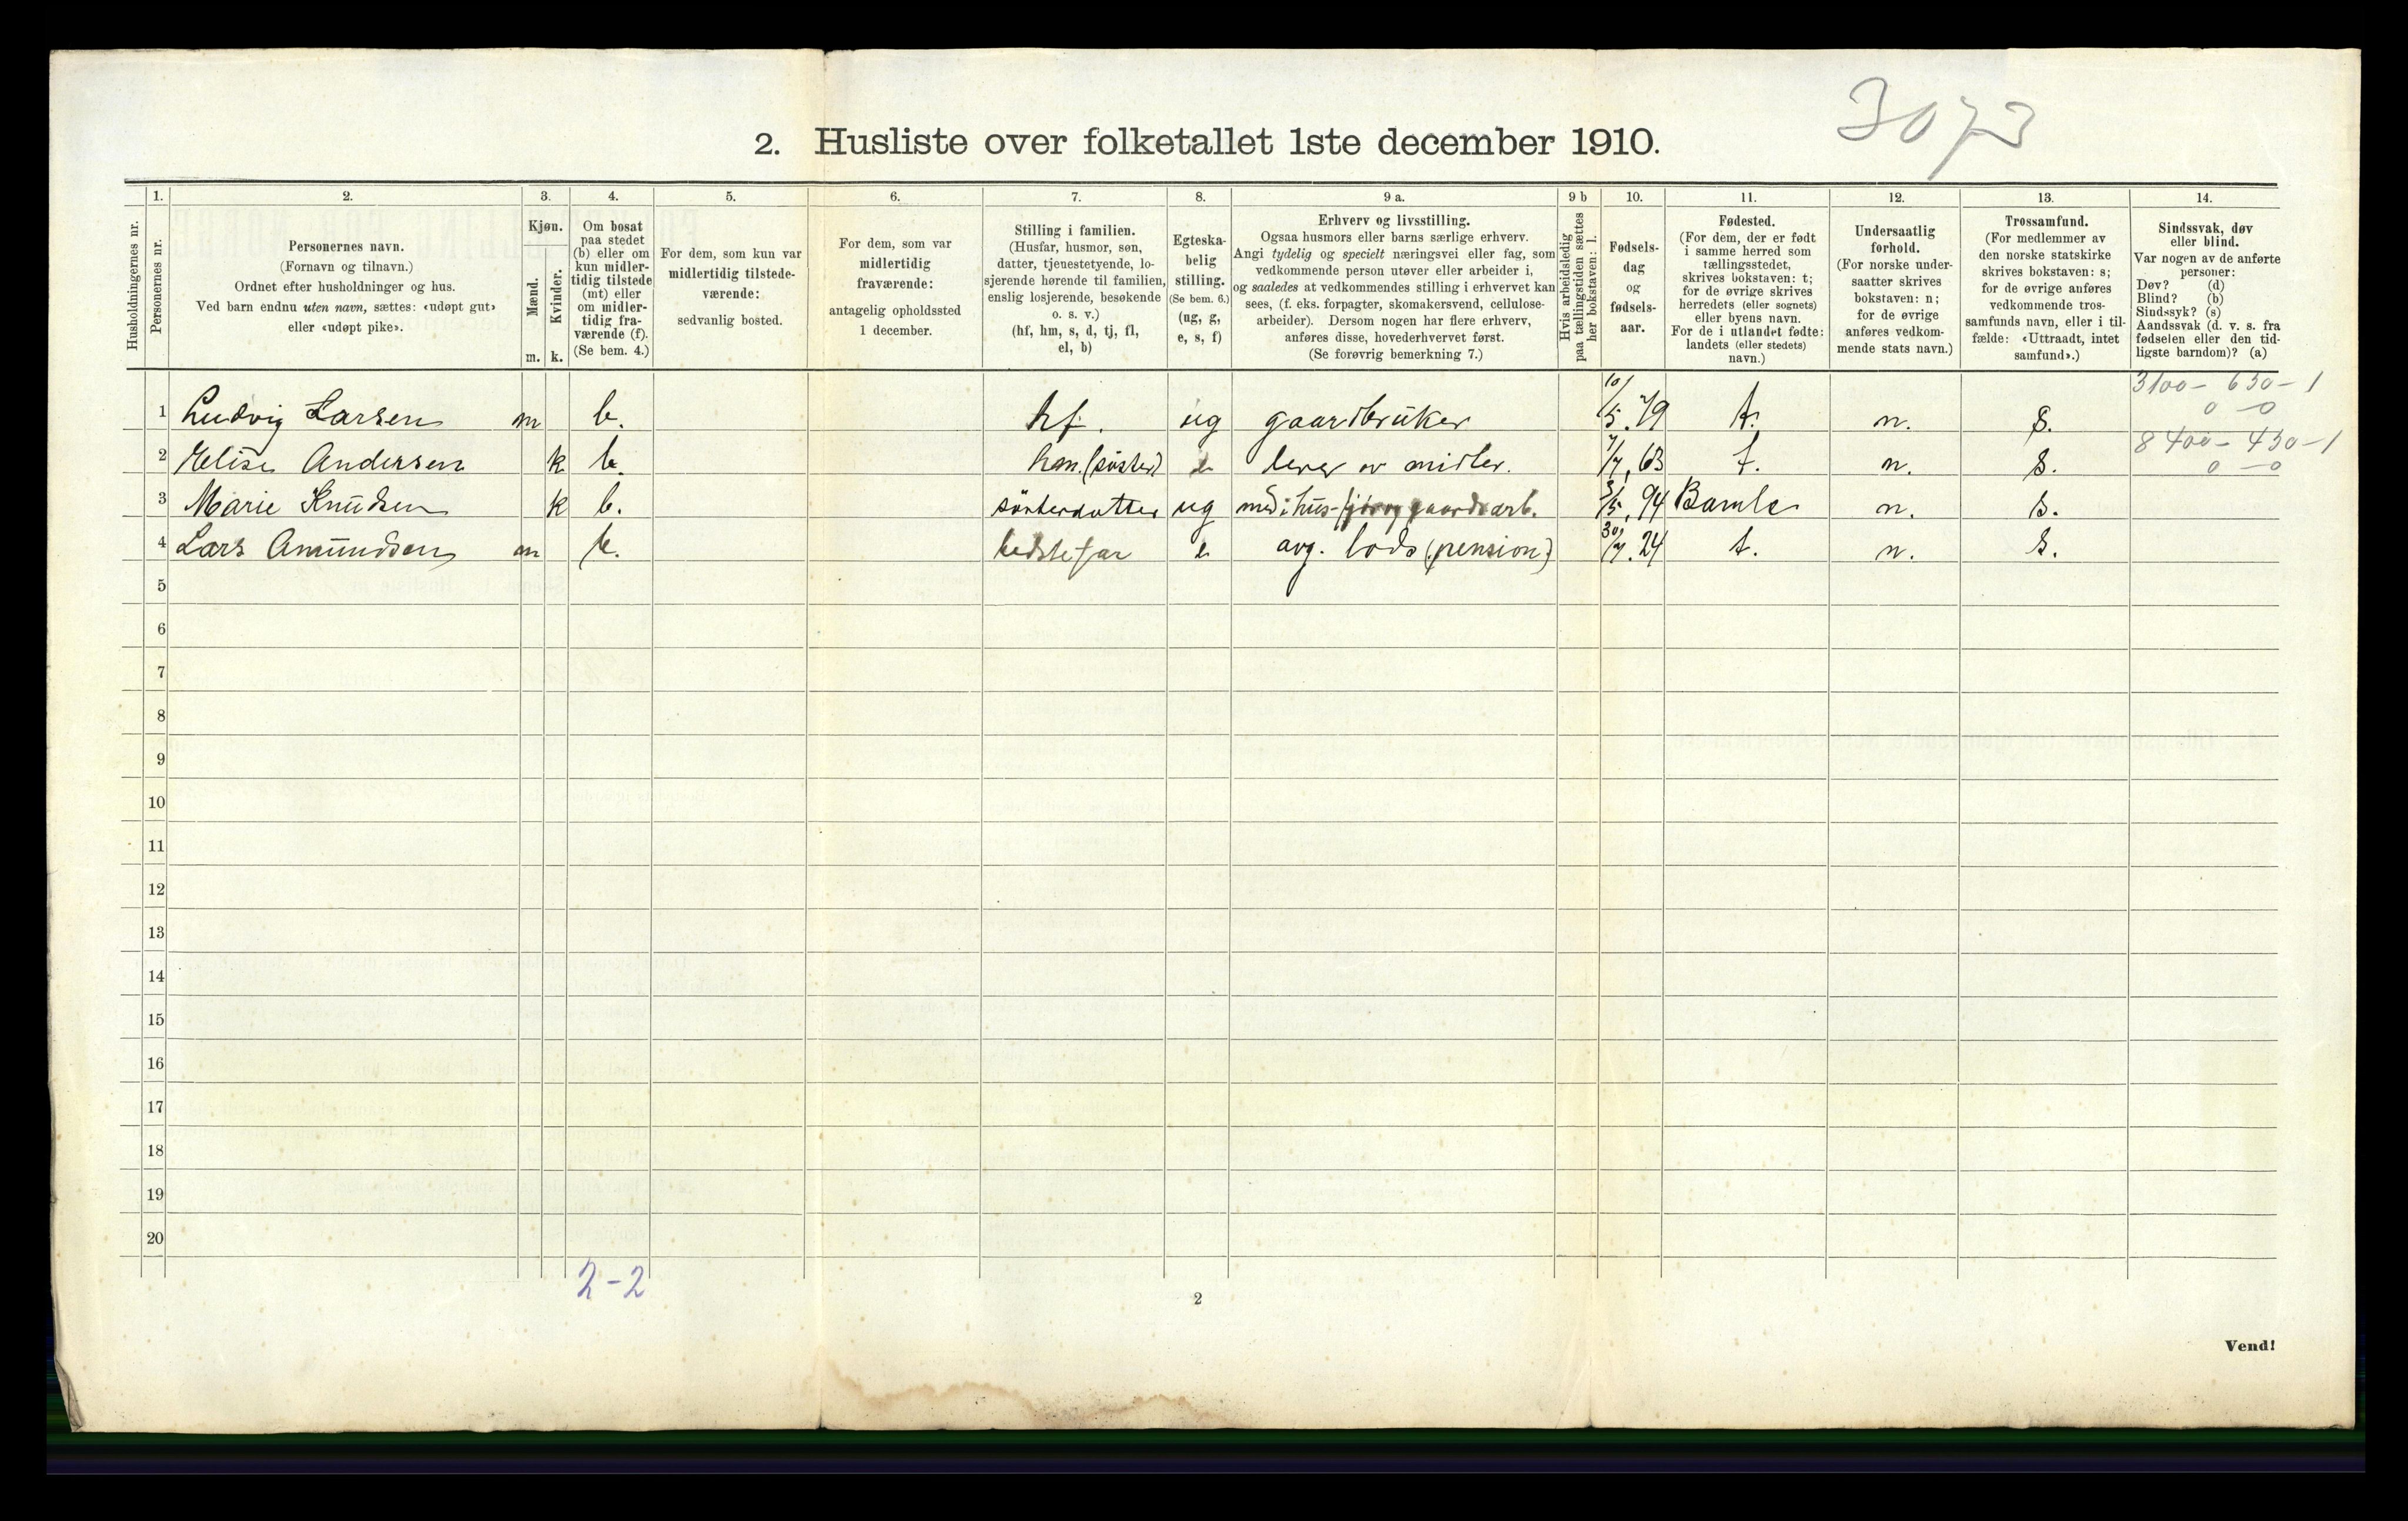 3073
2. Husliste over folketallet 1ste december 1910.
Husholdningernes nr.
1.
Personernes nr.
2.
Personernes navn.
(Fornavn og tilnavn.)
Ordnet efter husholdninger og hus.
Ved barn endnu uten navn, sættes: «udøpt gut»
eller «udøpt pike».
3.
Kjøn.
Mænd.
Kvinder.
m. k.
4.
Om bosat
paa stedet
(b) eller om
kun midler-
tidig tilstede
(mt) eller
om midler-
tidig fra-
værende (f).
(Se bem. 4.)
5.
For dem, som kun var
midlertidig tilstede-
værende:
sedvanlig bosted.
6.
For dem, som var
midlertidig
fraværende:
antagelig opholdssted
1 december.
7.
Stilling i familien.
(Husfar, husmor, søn,
datter, tjenestetyende, lo-
sjerende hørende til familien,
enslig losjerende, besøkende
o. s. v.)
(hf, hm, s, d, tj, fl,
el, b)
8.
Egteska-
belig
stilling.
(Se bem. 6.)
(ug, g,
e, s, f)
9 a.
Erhverv og livsstilling.
Ogsaa husmors eller barns særlige erhverv.
Angi tydelig og specielt næringsvei eller fag, som
vedkommende person utøver eller arbeider i,
og saaledes at vedkommendes stilling i erhvervet kan
sees, (f. eks. forpagter, skomakersvend, cellulose-
arbeider). Dersom nogen har flere erhverv,
anføres disse, hovederhvervet først.
(Se forøvrig bemerkning 7.)
9 b
Hvis arbeidsledig
paa tællingstiden sættes
her bokstaven: l.
10.
Fødsels-
dag
og
fødsels-
aar.
11.
Fødested.
(For dem, der er født
i samme herred som
tællingsstedet,
skrives bokstaven: t;
for de øvrige skrives
herredets (eller sognets)
eller byens navn.
For de i utlandet fødte:
landets (eller stedets)
navn.)
12.
Undersaatlig
forhold.
(For norske under-
saatter skrives
bokstaven: n;
for de øvrige
anføres vedkom-
mende stats navn.)
13.
Trossamfund.
(For medlemmer av
den norske statskirke
skrives bokstaven: s;
for de øvrige anføres
vedkommende tros-
samfunds navn, eller i til-
fælde: «Uttraadt, intet
samfund».)
14.
Sindssvak, døv
eller blind.
Var nogen av de anførte
personer:
Døv? (d)
Blind? (b)
Sindssyk? (s)
Aandssvak (d. v. s. fra
fødselen eller den tid-
ligste barndom)? (a)
1 Ludvig Larsen m b. hf. ug gaardbruker 10/5.79 t. n. s. 3100 - 630 - 1
0 - 0
2 Elise Andersen k b. hm.(søster) e lever av midler. 7/7.63 t. n. s. 8400 - 430 - 1
0 - 0
3 Marie Knudsen k b. søsterdatter ug med i hus- og gaardsarb. 3/5.94 Bamle n. s.
4 Lars Amundsen m b. bedstefar e avg. lods (pension) 30/7.24 t. n. s.
5
6
7
8
9
10
11
12
13
14
15
16
17
18
19
20
2-2
2
Vend!